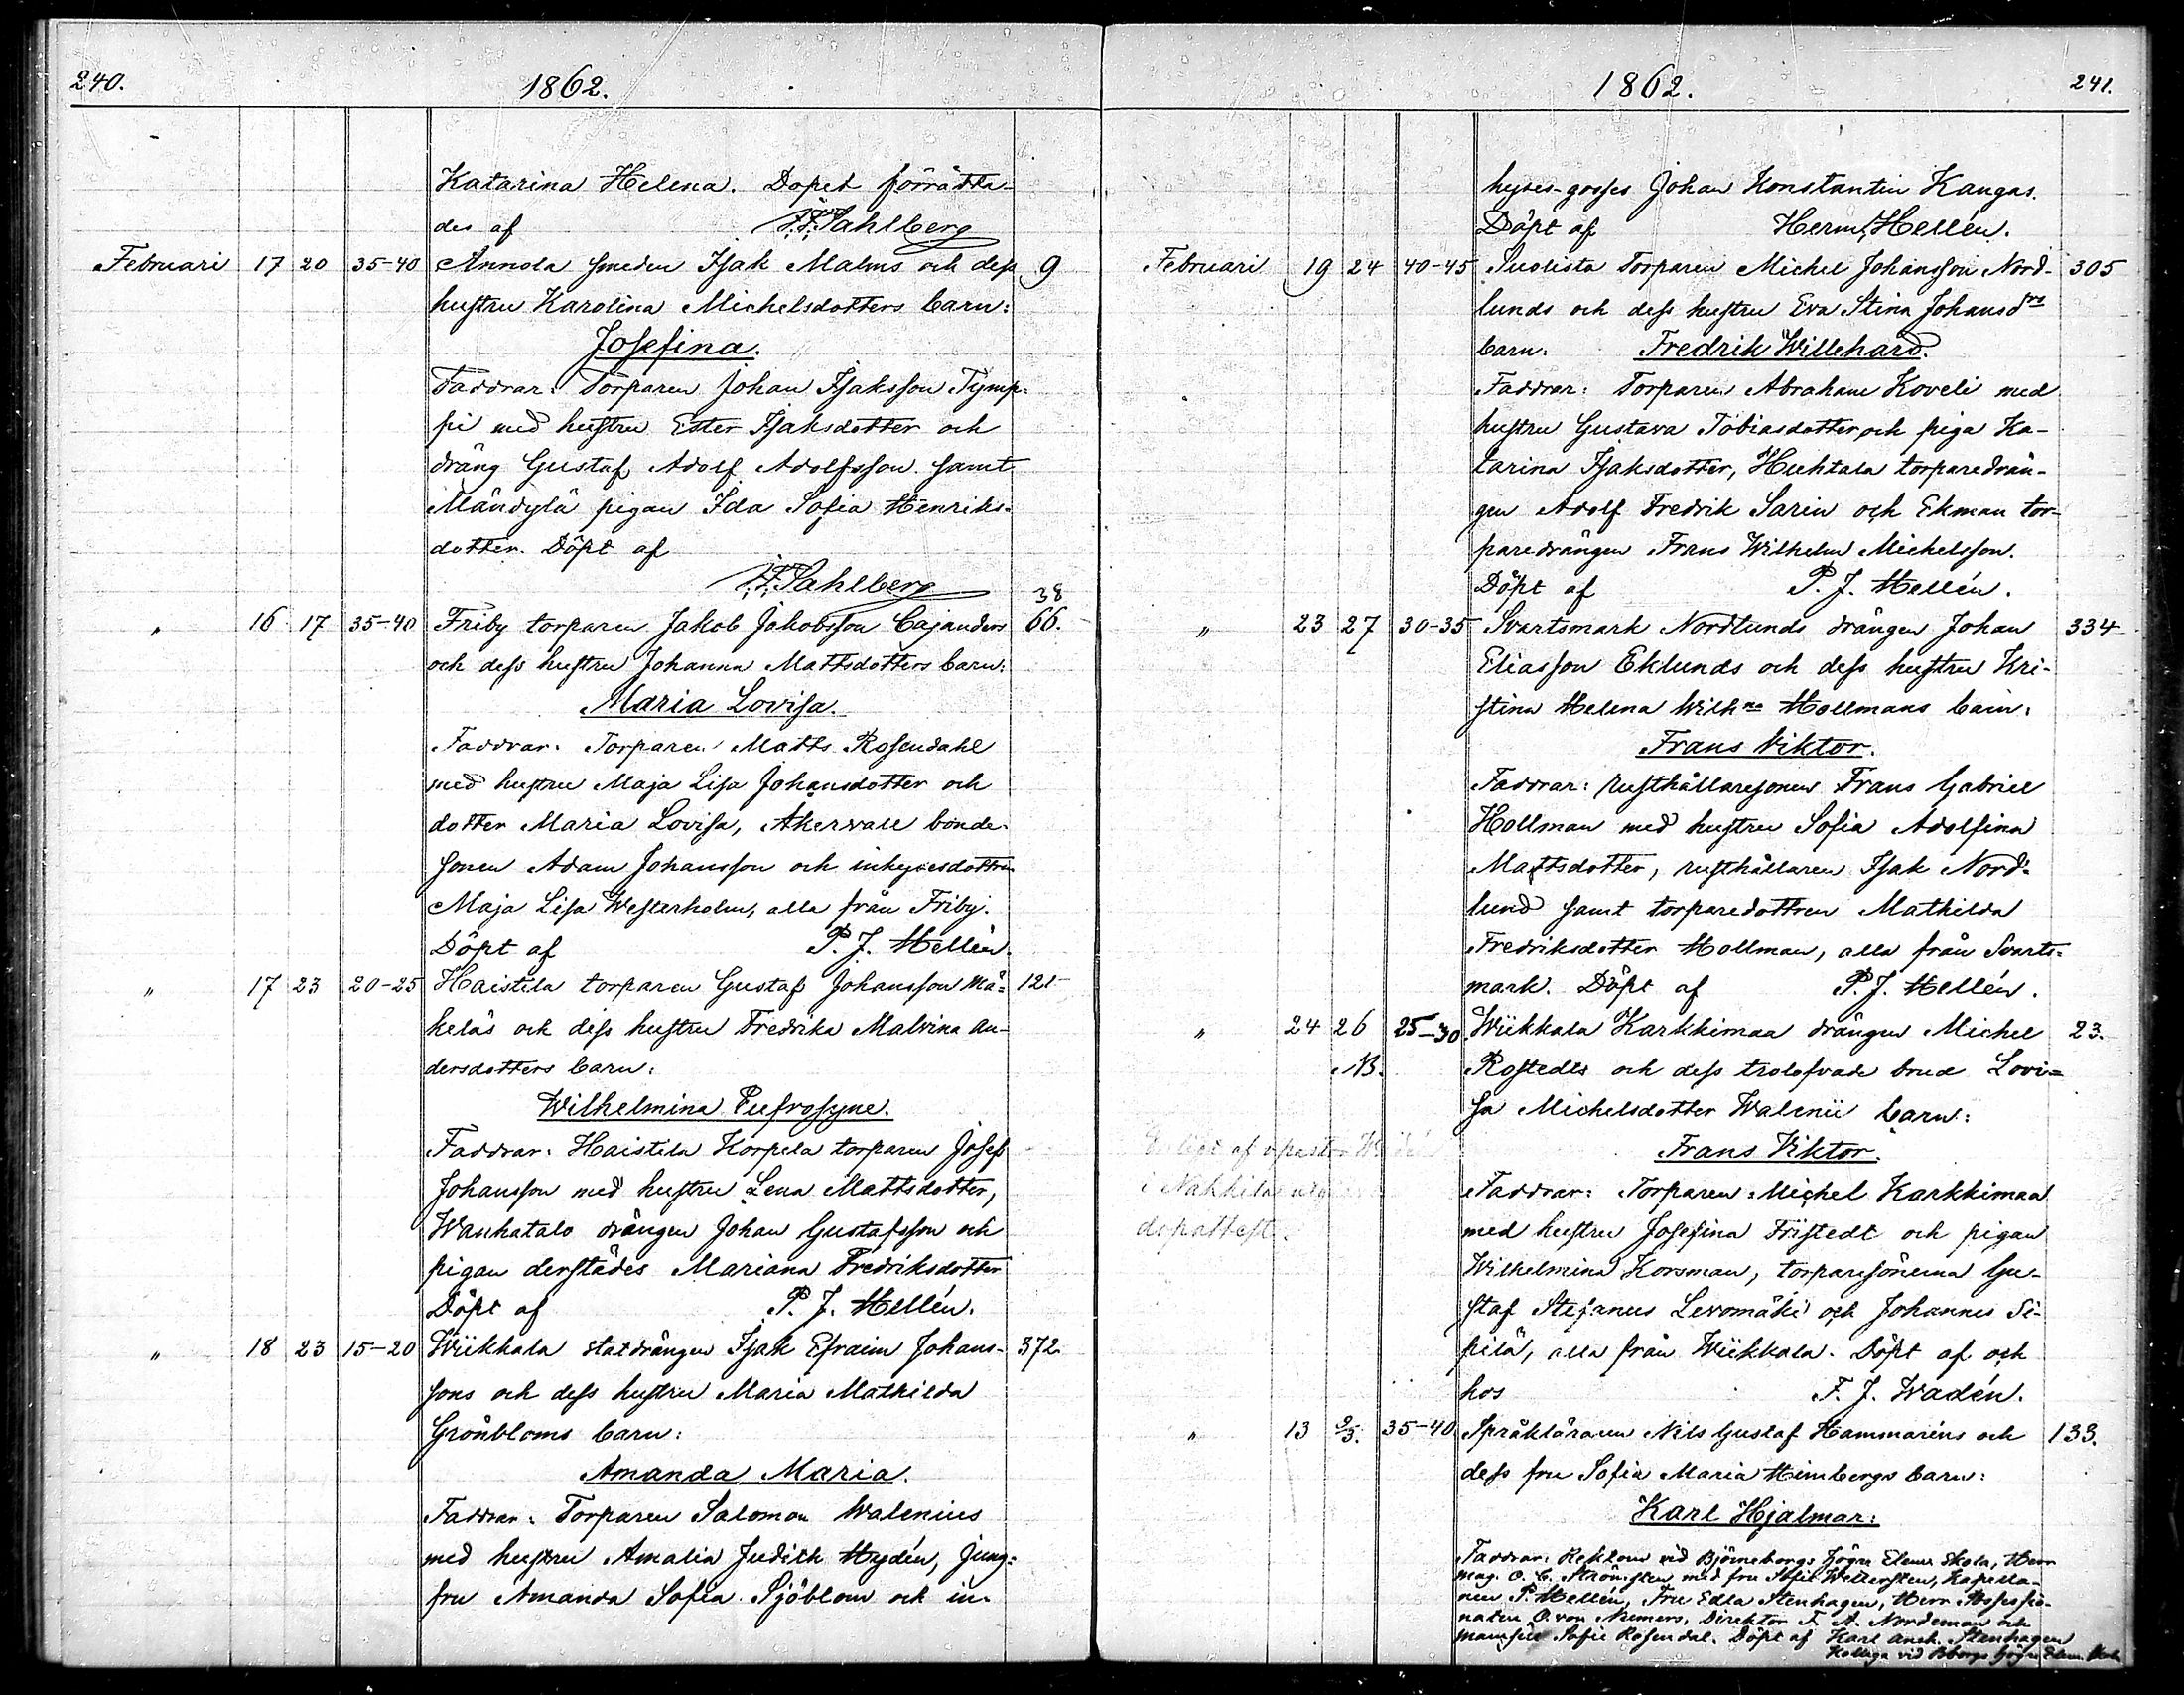 240.
1862.
Katarina Helena. Dopet förrätta-
des af F. F. Sahlberg
Februari 17 20 35-40 Annola smeden Isak Malms och dess 9
hustru Karolina Michelsdotters barn:
Josefina.
Faddrar: Torparen Johan Isaksson Tymp-
pi med hustru Ester Isaksdotter och
dräng Gustaf Adolf Adolfsson samt
Mändylä pigan Ida Sofia Henriks-
dotter. Döpt af
F. F. Sahlberg
38
" 16 17 35-40 Friby torparen Jakob Jakobsson Cajanders 66.
och dess hustru Johanna Mattsdotters barn:
Maria Lovisa.
Faddrar: Torparen Matts Rosendahl
med hustru Maja Lisa Johansdotter och
dotter Maria Lovisa, Akervall bonde-
sonen Adam Johansson och inhysesdottren
Maja Lisa Westerholm, alla från Friby.
Döpt af P. J. Hellén.
" 17 23 20-25 Haistila torparen Gustaf Johansson Mä- 121
keläs och dess hustru Fredrika Malvina An-
dersdotters barn:
Wilhelmina Eufrosyne.
Faddrar: Haistila Korpela torparen Josef
Johansson med hustru Lena Mattsdotter,
Wanhatalo drängen Johan Gustafsson och
pigan derstädes Mariana Fredriksdotter
Döpt af P. J. Hellén.
" 18 23 15-20 Wiikkala statdrängen Isak Efraim Johans- 372.
sons och dess hustru Maria Mathilda
Grönbloms barn:
Amanda Maria.
Faddrar: Torparen Salomon Walenius
med hustru Amalia Judith Hydén, jung-
fru Amanda Sofia Sjöblom och in-
1862.
241.
hyses-gosses Johan Konstantin Kangas.
Döpt af Herm. Hellén.
Februari 19 24 40-45 Suolista Torparen Michel Johansson Nord- 305
lunds och dess hustru Eva Stina Johansdrs
barn: Fredrik Willehard.
Faddrar: Torparen Abraham Koveli med
hustru Gustava Tobiasdotter och piga Ka-
tarina Isaksdotter, Huhtala torparedrän-
gen Adolf Fredrik Sarin och Ekman tor-
paredrängen Frans Wilhelm Michelsson.
Döpt af P. J. Hellén.
" 23 27 30-35 Svartsmark Nordlunds drängen Johan 334
Eliasson Eklunds och dess hustru Kri-
stina Helena Wilhna Hollmans barn:
Frans Viktor.
Faddrar: rusthållaresonen Frans Gabriel
Hollman med hustru Sofia Adolfina
Mattsdotter, rusthållaren Isak Nord-
lund samt torparedottren Mathilda
Fredriksdotter Hollman, alla från Svarts-
mark. Döpt af P. J. Hellén.
" 24 26 25-30 Wiikkala Karkkimaa drängen Michel 23.
NB. Rostedts och dess trolofvade brud Lovi-
sa Michelsdotter Walenii barn:
Frans Viktor.
Enligt af pastor
i Nakkila
dopattest.
Faddrar: Torparen Michel Karkkimaa
med hustru Josefina Fristedt och pigan
Wilhelmina Korsman, torparesönerna Gu-
staf Stefanus Levomäki och Johannes Si-
pilä, alla från Wiikkala. Döpt af och
hos F. J. Wadén.
" 13 2/3. 35-40 Språkläraren Nils Gustaf Hammaréns och 133.
dess fru Sofia Maria Himbergs barn:
Karl Hjalmar:
Faddrar: Rektorn vid Björneborgs högre Elem. Skola, Herr
mag. O. E. Strömsten med fru Sofie Wellersten, Kapella-
nen P. Hellén, Fru Edla Stenhagen, Herr Possessio-
naten O. von Numers, Direktor F. A. Nordeman och
mamsell Sofie Rosendal. Döpt af Karl Stenhagen
Kollega vid Bborgs högre Elem. Skola